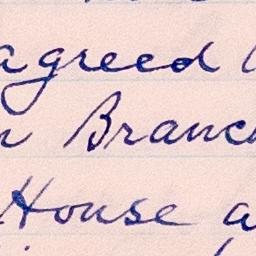 agreed
Branch
House a